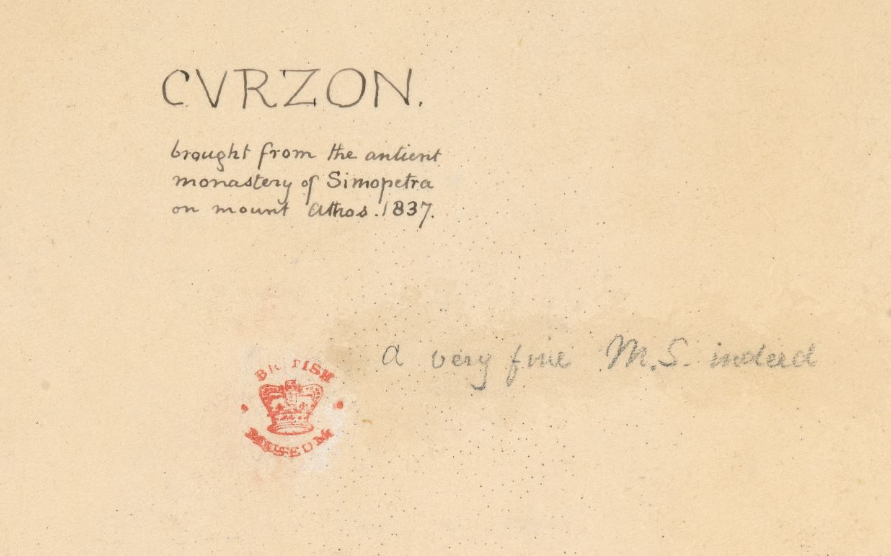 CVRZON.
brought from the antient
monastery of Simopetra
on mount Athos. 1837.
a very fine M.S. indeed
BRITISH
MUSEUM